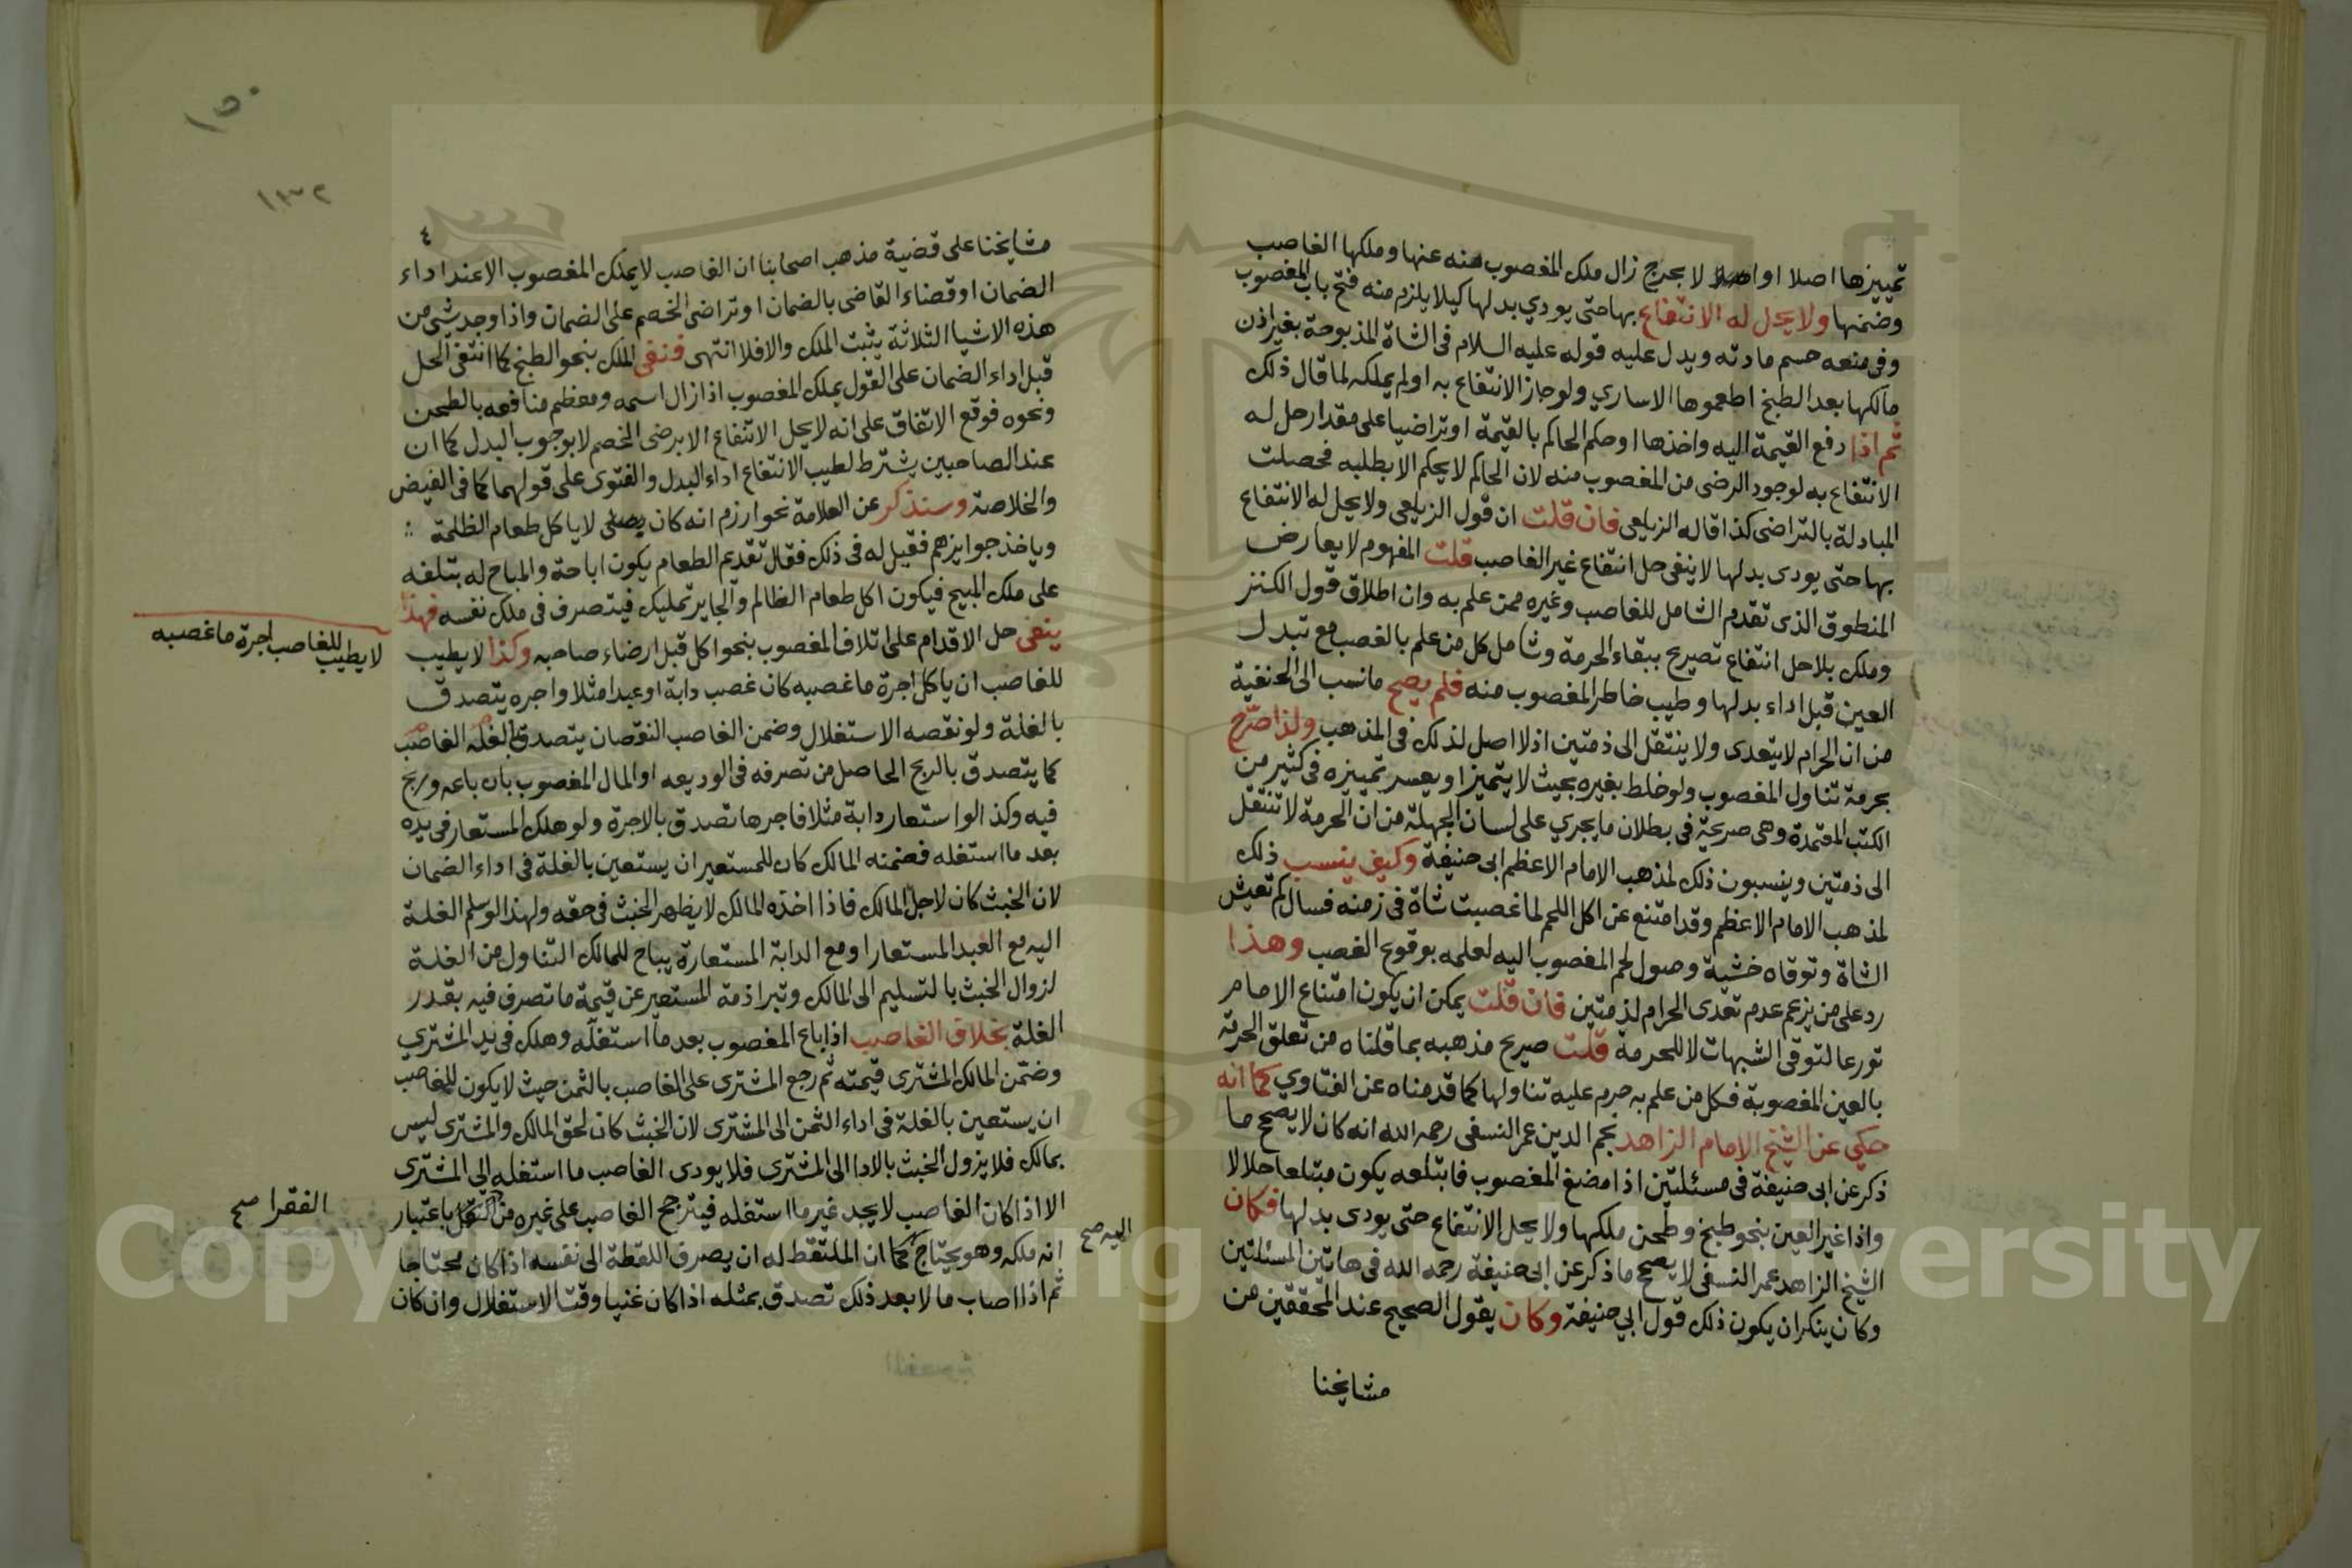 تمييزها اصلا او الا بحرج زال ملك المغصوب منه عنها وملكها الغاصب
وضمنها ولا يحل له الانتفاع بها حتى يودي بدلها كيلا يلزم منه فتح باب المغصوب
وفى منعه حسم مادته ويدل عليه قوله عليه السلام فى الشاة المذبوحة بغير اذن
مالكها بعد الطبخ اطعموها الاساري ولو جاز الانتفاع به او لم يملكه لما قال ذلك
ثم اذا دفع القيمة اليه واخذها او حكم الحاكم بالقيمة او تراضيا على مقدار حل له
الانتفاع به لوجود الرضى من المغصوب منه لان الحاكم لا يحكم الا بطلبه فحصلت
المبادلة بالتراضى كذا قاله الزيلعى فان قلت ان قول الزيلعى ولا يحل له الانتفاع
بها حتى يودى بدلها لا ينفى حل انتفاع غير الغاصب قلت المفهوم لا يعارض
المنطوق الذى تقدم الشامل للغاصب وغيره ممن علم به وان اطلاق قول الكنز
وملك بلا حل انتفاع تصريح ببقاء الحرمة وشامل كل من علم بالغصب مع تبدل
العين قبل اداء بدلها وطيب خاطر المغصوب منه فلم يصح ما نسب الى الحنفية
من ان الحرام لا يتعدى ولا ينتقل الى ذمتين اذ لا اصل لذلك فى المذهب ولذا صرح
بحرمة تناول المغصوب ولو خلط بغيره بحيث لا يتميز او يعسر تمييزه فى كثير من
الكتب المعتمدة وهى صريحة فى بطلان ما يجري على لسان الجهلة من ان الحرمة لا تنتقل
الى ذمتين وينسبون ذلك لمذهب الامام الاعظم ابى حنيفة وكيف ينسب ذلك
لمذهب الامام الاعظم وقد امتنع عن اكل اللحم لما غصبت شاة فى زمنه فسال كم تعيش
الشاة وتوقاه خشية وصول لحم المغصوب اليه لعلمه بوقوع الغصب وهذا
رد على من يزعم عدم تعدى الحرام لذمتين فان قلت يمكن ان يكون امتناع الامام
تورعا لتوقى الشبهات لا للحرمة قلت صريح مذهبه بما قلناه من تعلق الحرمة
بالعين المغصوبة فكل من علم به حرم عليه تناولها كما قدمناه عن الفتاوي كما انه
حكي عن الشيخ الامام الزاهد نجم الدين عمر النسفى رحمه الله انه كان لا يصحح ما
ذكر عن ابى حنيفة فى مسئلتين اذا مضغ المغصوب فابتلعه يكون مبتلعا حلالا
واذا غير العين بنحو طبخ وطحن ملكها ولا يحل الانتفاع حتى يودى بدلها فكان
الشيخ الزاهد عمر النسفى لا يصحح ما ذكر عن ابى حنيفة رحمه الله فى هاتين المسئلتين
وكان ينكر ان يكون ذلك قول ابي حنيفة وكان يقول الصحيح عند المحققين من
مشايخنا
١٥٠
١٣٢
٤
مشايخنا على قضية مذهب اصحابنا ان الغاصب لا يملك المغصوب الا عند اداء
الضمان او قضاء القاضى بالضمان او تراضى الخصم على الضمان واذا وجد شئ من
هذه الاشيا الثلاثة يثبت الملك والا فلا انتهى فنفى الملك بنحو الطبخ كما انتفى الحل
قبل اداء الضمان على القول يملك المغصوب اذا زال اسمه ومعظم منافعه بالطحن
ونحوه فوقع الاتفاق على انه لا يحل الانتفاع الا برضى الخصم لا بوجوب البدل كما ان
عند الصاحبين يشترط لطيب الانتفاع اداء البدل والفتوى على قولهما كما فى الفيض
والخلاصة وسنذكر عن العلامة نحوارزم انه كان يصلى لا ياكل طعام الظلمة
وياخذ جوايزهم فقيل له فى ذلك فقال تقديم الطعام يكون اباحة والمباح له يتلفه
على ملك المبيح فيكون اكل طعام الظالم والجاير تمليك فيتصرف فى ملك نفسه فهذا
ينفى حل الاقدام على اتلاف المغصوب بنحو اكل قبل ارضاء صاحبه وكذا لا يطيب
لا يطيب للغاصب اجرة ما غصبه
للغاصب ان ياكل اجرة ما غصبه كان غصب دابة او عبدا مثلا واجره يتصدق
بالغلة ولو نقصه الاستغلال وضمن الغاصب النقصان يتصدق بالغلة الغاصب
كما يتصدق بالربح الحاصل من تصرفه فى الوديعه او المال المغصوب بان باعه وربح
فيه وكذا لو استعار دابة مثلا فاجرها تصدق بالاجرة ولو هلك المستعار فى يده
بعد ما استغله فضمنه المالك كان للمستعير ان يستعين بالغلة فى اداء الضمان
لان الخبث كان لاجل المالك فاذا اخذه المالك لا يظهر الخبث فى حقه ولهذا لو سلم الغلة
اليه مع العبد المستعار او مع الدابة المستعارة يباح للمالك التناول من الغلة
لزوال الخبث بالتسليم الى المالك وتبرا ذمة المستعير عن قيمة ما تصرف فيه بقدر
الغلة بخلاف الغاصب اذا باع المغصوب بعد ما استغله وهلك فى يد المشتري
وضمن المالك المشترى قيمته ثم رجع المشترى على الغاصب بالثمن حيث لا يكون للغاصب
ان يستعين بالغلة فى اداء الثمن الى المشترى لان الخبث كان لحق المالك والمشترى ليس
بمالك فلا يزول الخبث بالادا الى المشترى فلا يودى الغاصب ما استغله الى المشترى
الا اذا كان الغاصب لا يجد غير ما استغله فيترجح الغاصب على غيره من باعتبار
الفقرا صح
اليه صح
انه ملكه وهو يحتاج كما ان الملتقط له ان يصرف اللقطة الى نفسه اذا كان محتاجا
ثم اذا اصاب مالا بعد ذلك تصدق بمثله اذا كان غنيا وقت الاستغلال وان كان
Copyright © King Saud University